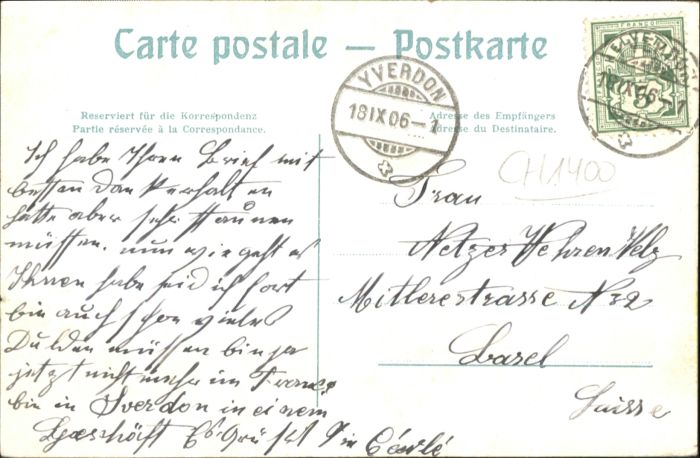 Carte postale — Postkarte
Reserviert für die Korrespondenz
Partie réservée à la Correspondance.
Adresse des Empfängers
Adresse du Destinataire.
YVERDON
18 IX 06 – 1
FRANCO
5
YVERDON
18 IX 06 – 1
CH1400
Ich habe Ihren Brief mit
besten Dank erhalten
hätte aber sehr staunen
müssen. nun wie geht es
Ihnen habe seid ich fort
bin auch schon vieles
Dulden müssen bin ja
jetzt nicht mehr im
bin in Iverdon in einem
Geschäft Es Grüsst Sie
Frau
Mitlerestrasse N 32
Basel
Suisse